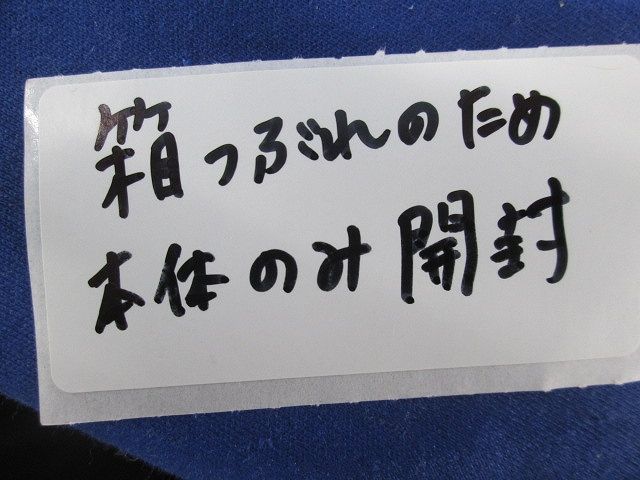 箱つぶれのため
本体のみ開封